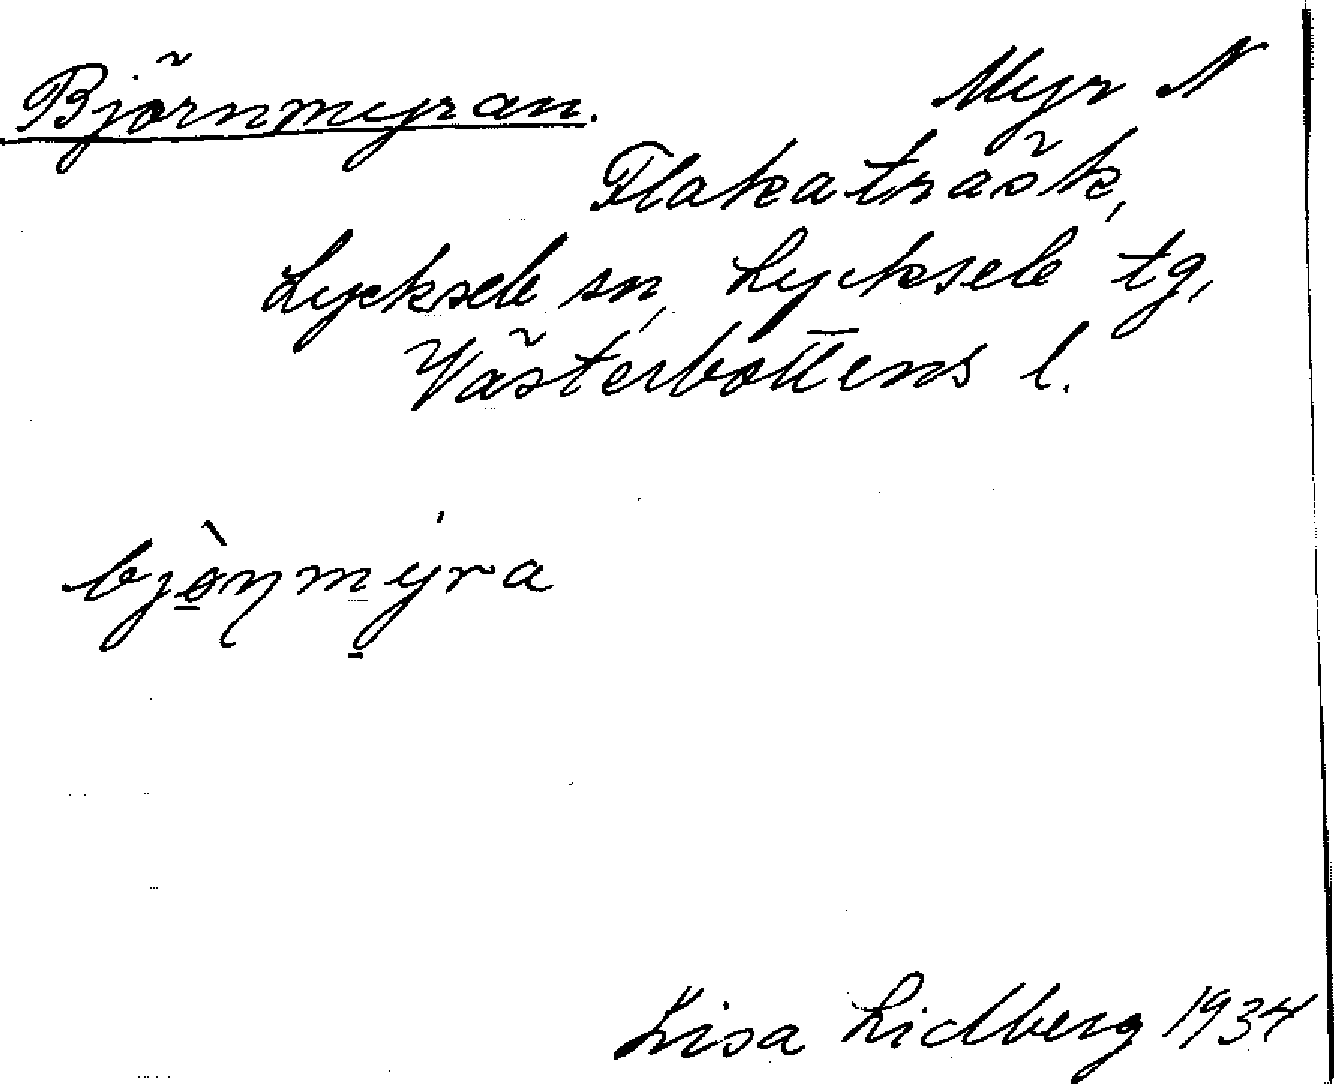 Björnmyran. Myr N
Flakaträsk,
Lycksele sn, Lycksele tg,
Västerbottens l.
bjò̱ŋmy̱ra
Lisa Lidberg 1934